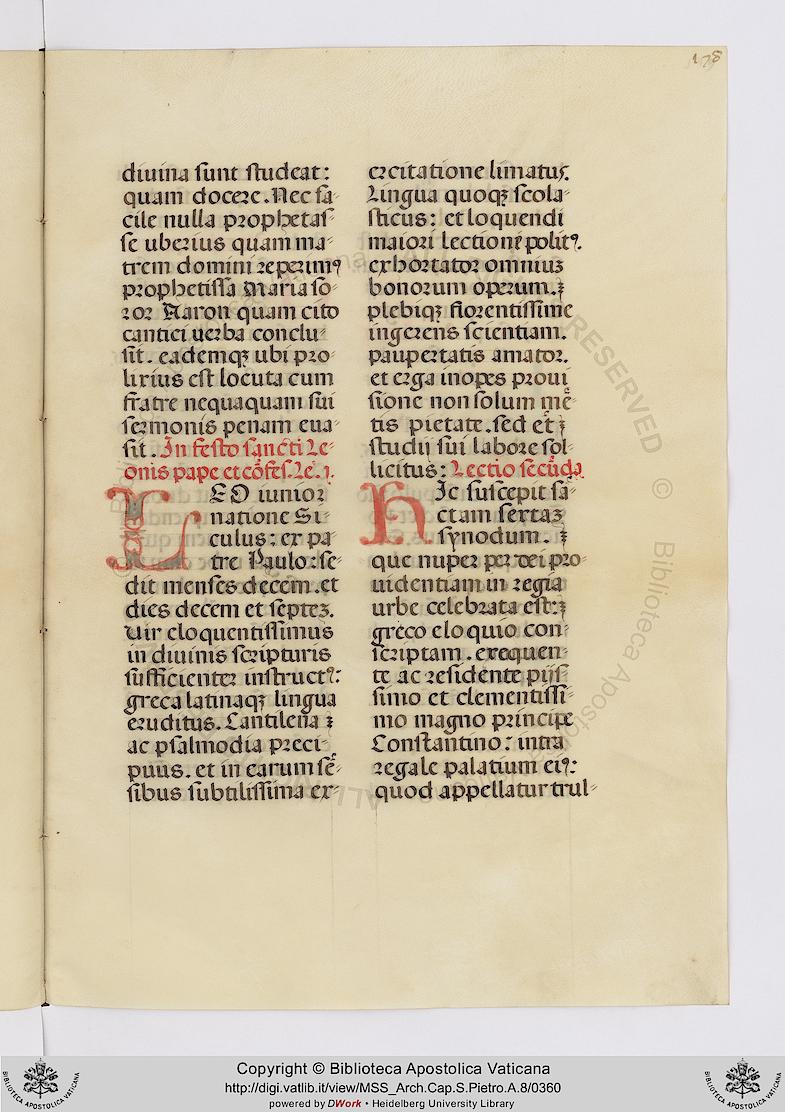 178
diuina sunt studeat:
quam docere. Nec fa-
cile nulla prophetas-
se uberius quam ma-
trem domini reperimꝰ
prophetissa Maria so-
ror Aaron quam cito
cantici uerba conclu-
sit. eademqꝫ ubi pro-
lixius est locuta cum
fratre nequaquam sui
sermonis penam eua-
sit. In festo sancti Le-
onis pape et cōfes. Le. 1.
LEO iunior
natione Si-
culus: ex pa-
tre Paulo: se-
dit menses decem. et
dies decem et septeꝫ.
Vir eloquentissimus
in diuinis scripturis
sufficienter instructꝰ:
greca latinaqꝫ lingua
eruditus. Cantilena ⁊
ac psalmodia preci-
puus. et in earum sē-
sibus subtilissima ex-
ercitatione limatus.
Lingua quoqꝫ scola-
sticus: et loquendi
maiori lectione politꝰ.
exhortator omniuꝫ
bonorum operum. ⁊
plebiqꝫ florentissime
ingerens scientiam.
paupertatis amator.
et erga inopes proui
sione non solum mē-
tis pietate. sed et ⁊
studij sui labore sol-
licitus: Lectio secūda.
Hic suscepit sā-
ctam sextaꝫ
synodum. ⁊
que nuper per dei pro-
uidentiam in regia
urbe celebrata est: ⁊
greco eloquio con-
scriptam. exequen-
te ac residente pijs-
simo et clementissi-
mo magno principe
Constantino: intra
regale palatium eiꝰ:
quod appellatur trul-
RESERVED © Biblioteca Apostolica
Copyright © Biblioteca Apostolica Vaticana
http://digi.vatlib.it/view/MSS_Arch.Cap.S.Pietro.A.8/0360
powered by DWork • Heidelberg University Library
BIBLIOTECA APOSTOLICA VATICANA
BIBLIOTECA APOSTOLICA VATICANA